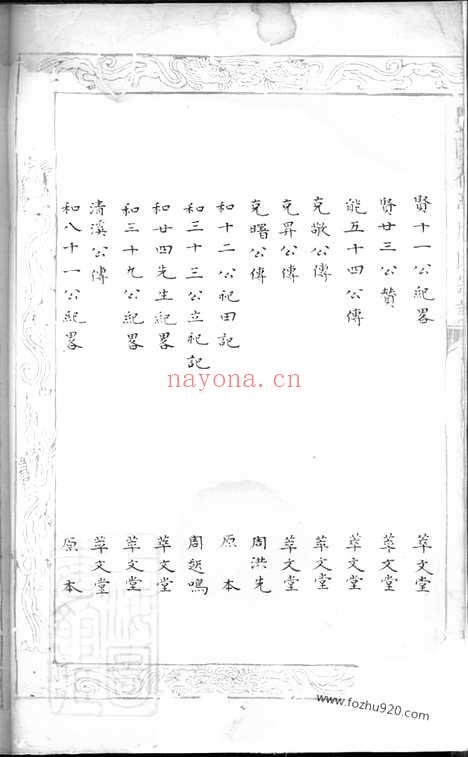 賢十一公紀畧 萃文堂
賢廿三公贊 萃文堂
能五十四公傳 萃文堂
克敬公傳 萃文堂
克昇公傳 萃文堂
克曙公傳 周洪先
和十二公祀田記 原本
和三十三公立祀記 周起鳴
和廿四先生紀畧 萃文堂
和三十九公紀畧 萃文堂
清溪公傳 萃文堂
和八十一公紀畧 原本
nayona.cn
www.fozhu920.com